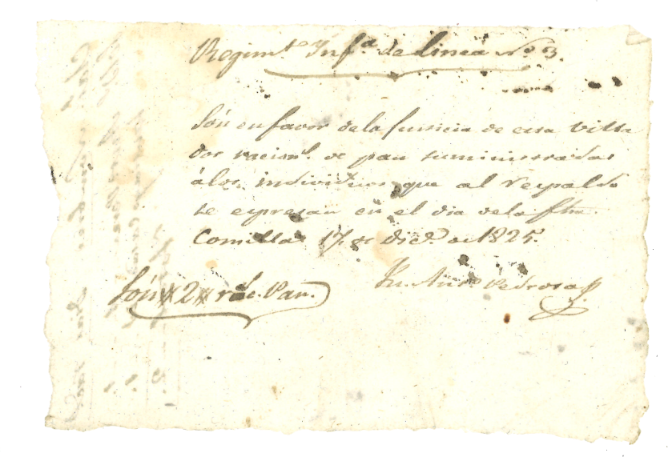 Regim.to Inf.a de Linea N.o 3.
Son en favor de la Justicia de esa Villa
dos racion.s de pan suministradas
á los individuos que al respaldo
se expresan en el dia de la fha.
Comilla 17 de Dic.e de 1825.
Son # 2 # r.s de Pan.
Ant.o Pedrosa